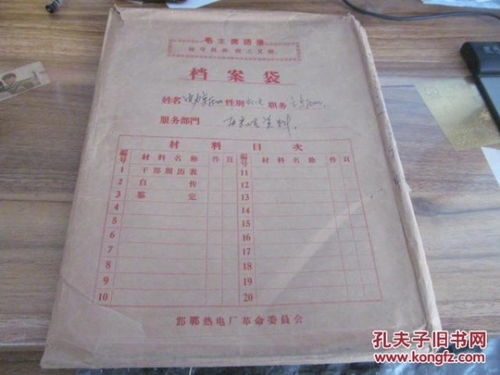 毛主席语录
档案袋
姓名 性别 职务
服务部門
材料目次
編号 材料名称 件 頁 編号 材料名称 件 頁
1 干部履历表 11
2 自传 12
3 鉴定 13
4 14
5 15
6 16
7 17
8 18
9 19
10 20
邯郸热电厂革命委員会
孔夫子旧书网
www.kongfz.com